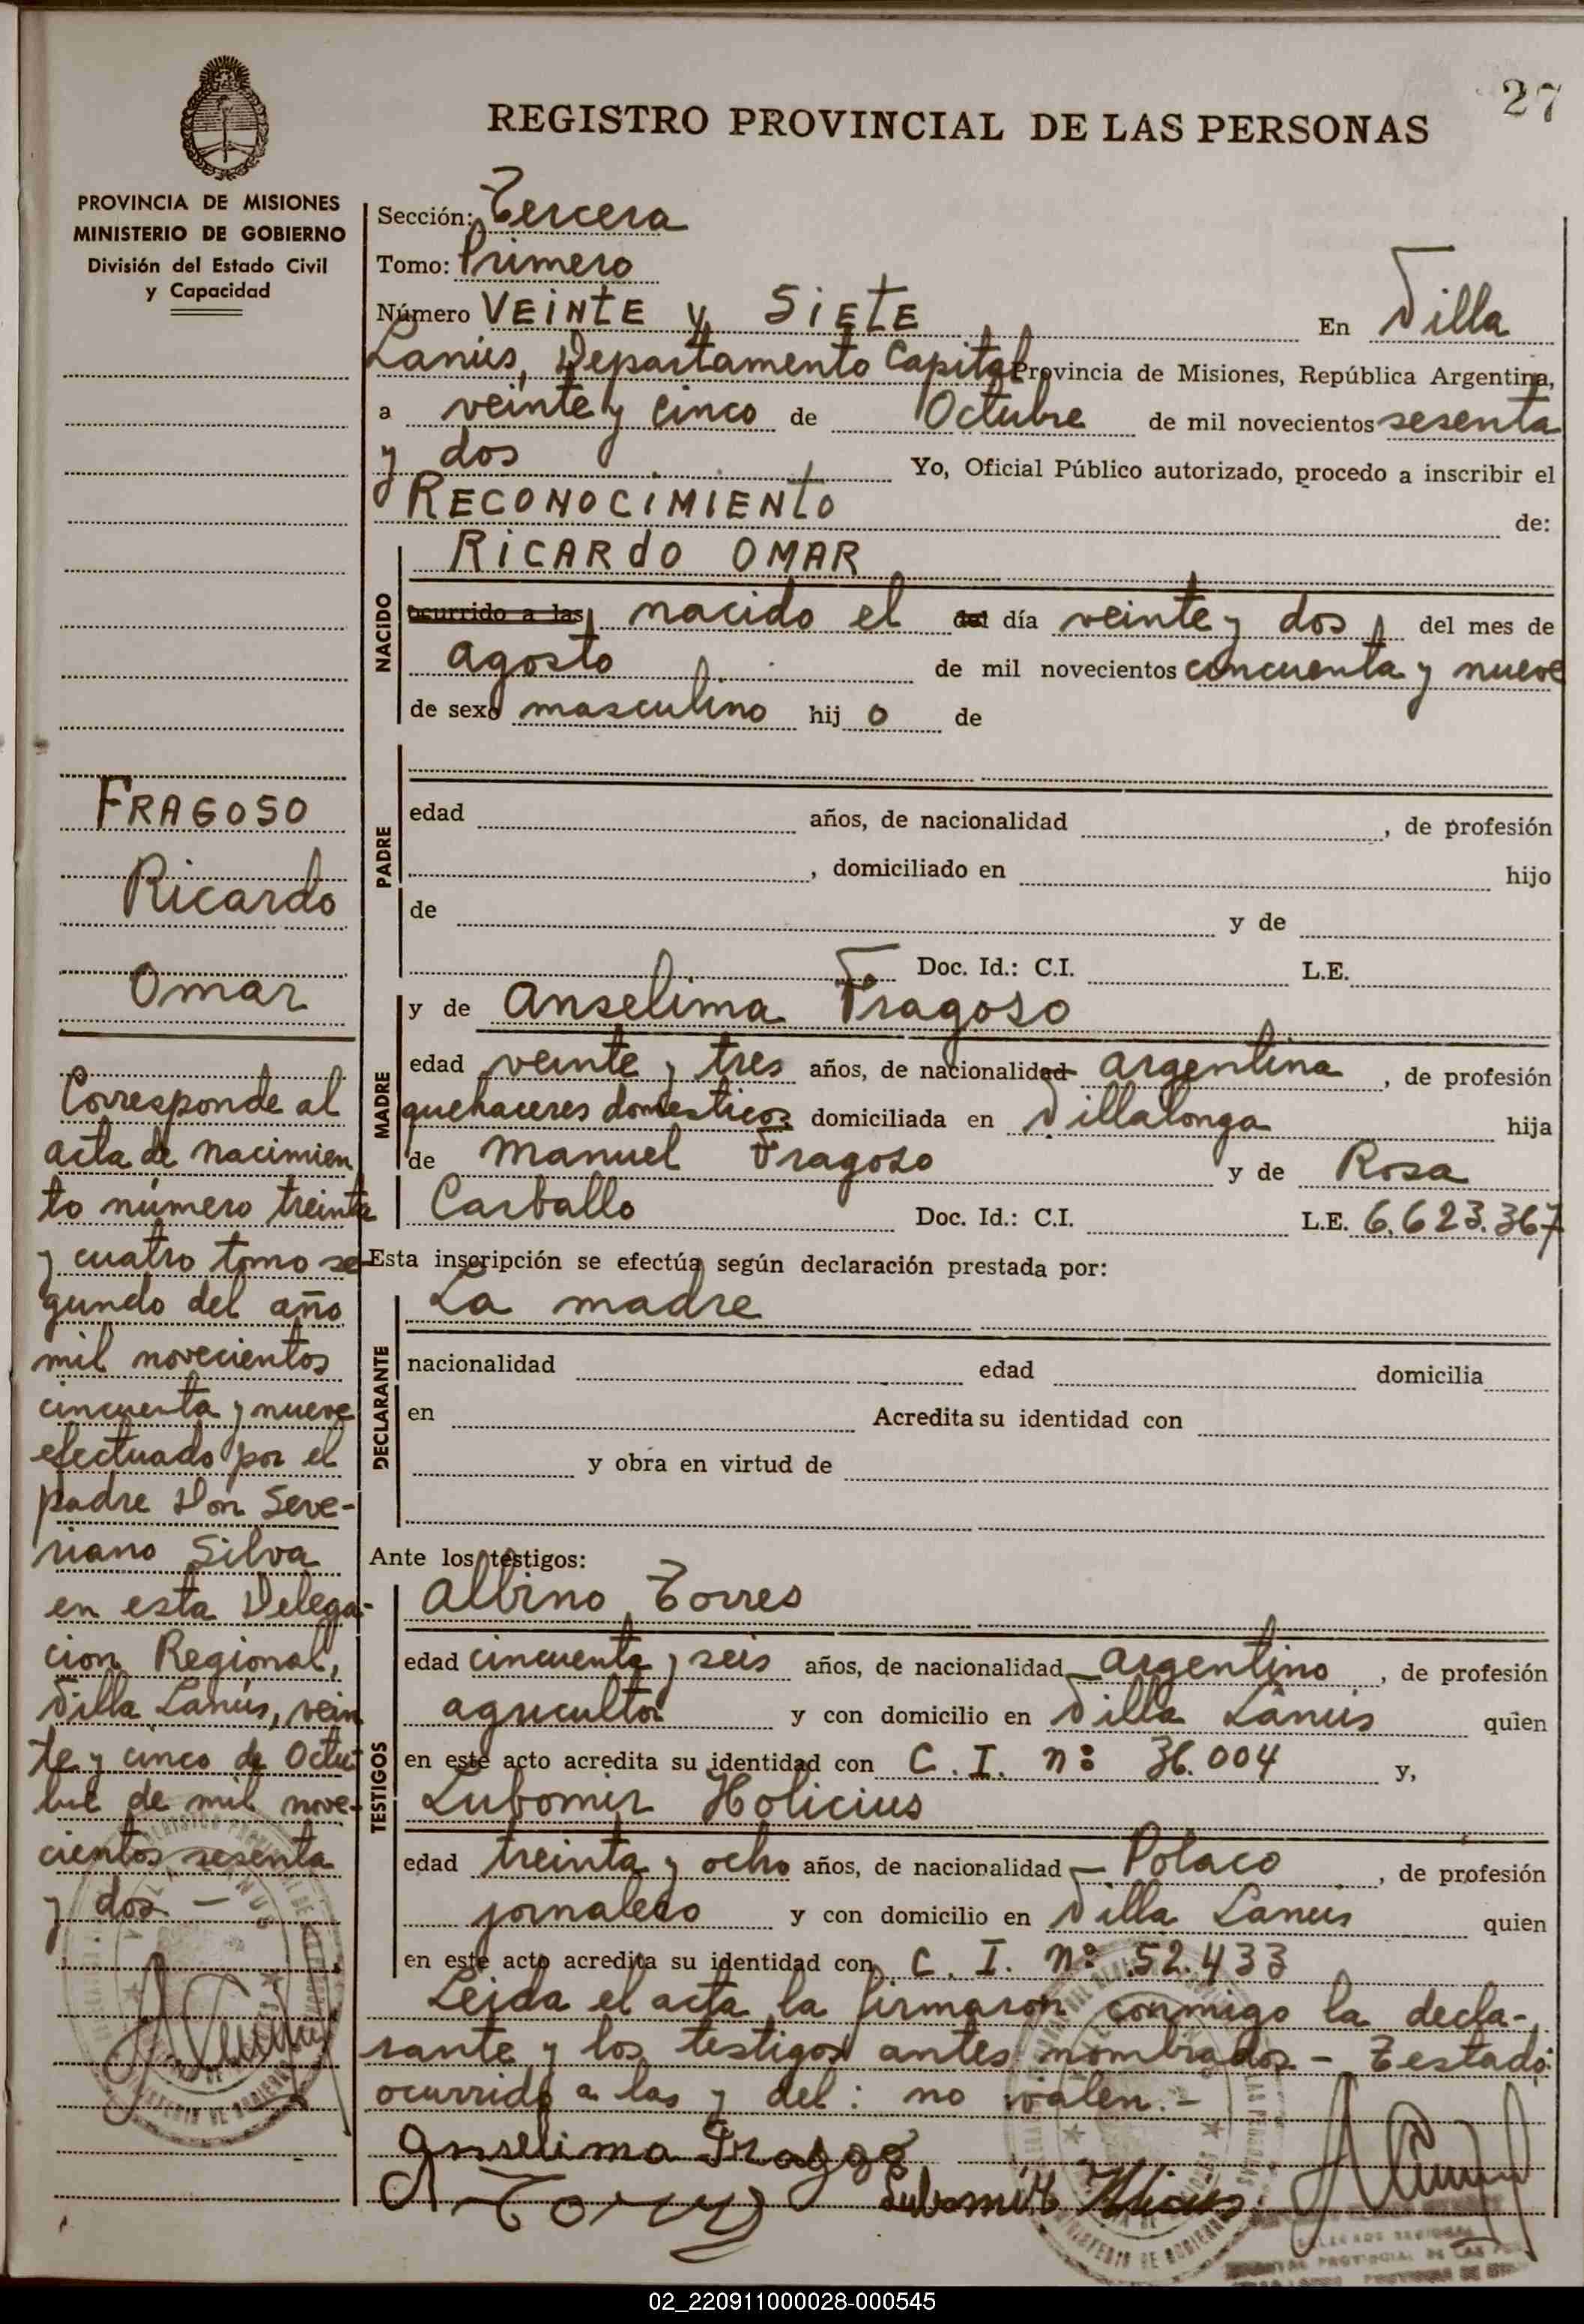 27
REGISTRO PROVINCIAL DE LAS PERSONAS
PROVINCIA DE MISIONES
MINISTERIO DE GOBIERNO
División del Estado Civil
y Capacidad
FRAGOSO
Ricardo
Omar
Corresponde al
acta de nacimien
to número treinta
y cuatro tomo se
gundo del año
mil novecientos
cincuenta y nueve
efectuado por el
padre Don Seve-
riano Silva
en esta Delega-
cion Regional,
Villa Lanús, vein
te y cinco de Octu
bre de mil nove-
cientos sesenta
y dos. -
Sección: Tercera
Tomo: Primero
Número VEINTE y SIETE En Villa
Lanús, Departamento Capital Provincia de Misiones, República Argentina,
a veinte y cinco de Octubre de mil novecientos sesenta
y dos Yo, Oficial Público autorizado, procedo a inscribir el
RECONOCIMIENTO de:
NACIDO
RICARDO OMAR
ocurrido a las nacido el del día veinte y dos del mes de
agosto de mil novecientos concuenta y nueve
de sexo masculino hij o de
PADRE
edad años, de nacionalidad , de profesión
, domiciliado en hijo
de y de
Doc. Id.: C.I. L.E.
MADRE
y de Anselima Fragoso
edad veinte y tres años, de nacionalidad argentina , de profesión
quehaceres domesticos domiciliada en Villalonga hija
de Manuel Fragoso y de Rosa
Carballo Doc. Id.: C.I. L.E. 6.623.367
Esta inscripción se efectúa según declaración prestada por:
DECLARANTE
La madre
nacionalidad edad domicilia
en Acredita su identidad con
y obra en virtud de
Ante los testigos:
TESTIGOS
Albino Torres
edad cincuenta y seis años, de nacionalidad argentino , de profesión
agricultor y con domicilio en Villa Lanús quien
en este acto acredita su identidad con C. I. nº 36.004 y,
Lubomir Holicius
edad treinta y ocho años, de nacionalidad Polaco , de profesión
jornalero y con domicilio en Villa Lanus quien
en este acto acredita su identidad con C. I. Nº 52.433
Leida el acta la firmaron conmigo la decla-
rante y los testigos antes nombrados - Testado:
ocurrido a las y del: no valen. -
Anselima Fragoso
A Torres Lubomir
02_220911000028-000545